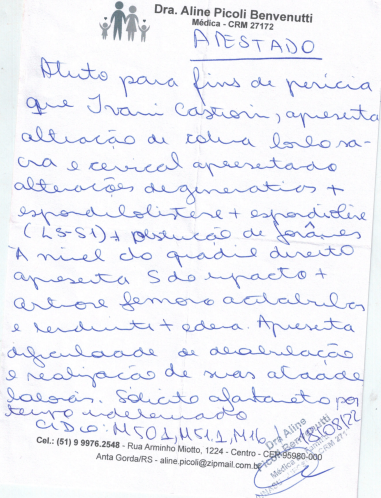 Dra. Aline Picoli Benvenutti
Médica - CRM 27172
ATESTADO
Atesto para fins de perícia
que Ivani Castioni, apresenta
alteração de coluna lombo sa-
cra e cervical apresentado
alterações degenerativas +
espondilolistese + espondilólise
(L5-S1) + obstrução de forâmes
A nível do quadril direito
apresenta S do impacto +
artrose femoro acetabular
e tendinite + edema. Apresenta
dificuldade de deambulação
e realização de suas atividades
laborais. Solicito afastamento por
tempo indeterminado
CIDs: M501, M511, M16
18/08/22
Dra Aline
Picoli Benvenutti
Médica
Cel.: (51) 9 9976.2548 - Rua Arminho Miotto, 1224 - Centro - CEP 95980-000
Anta Gorda/RS - aline.picoli@zipmail.com.br